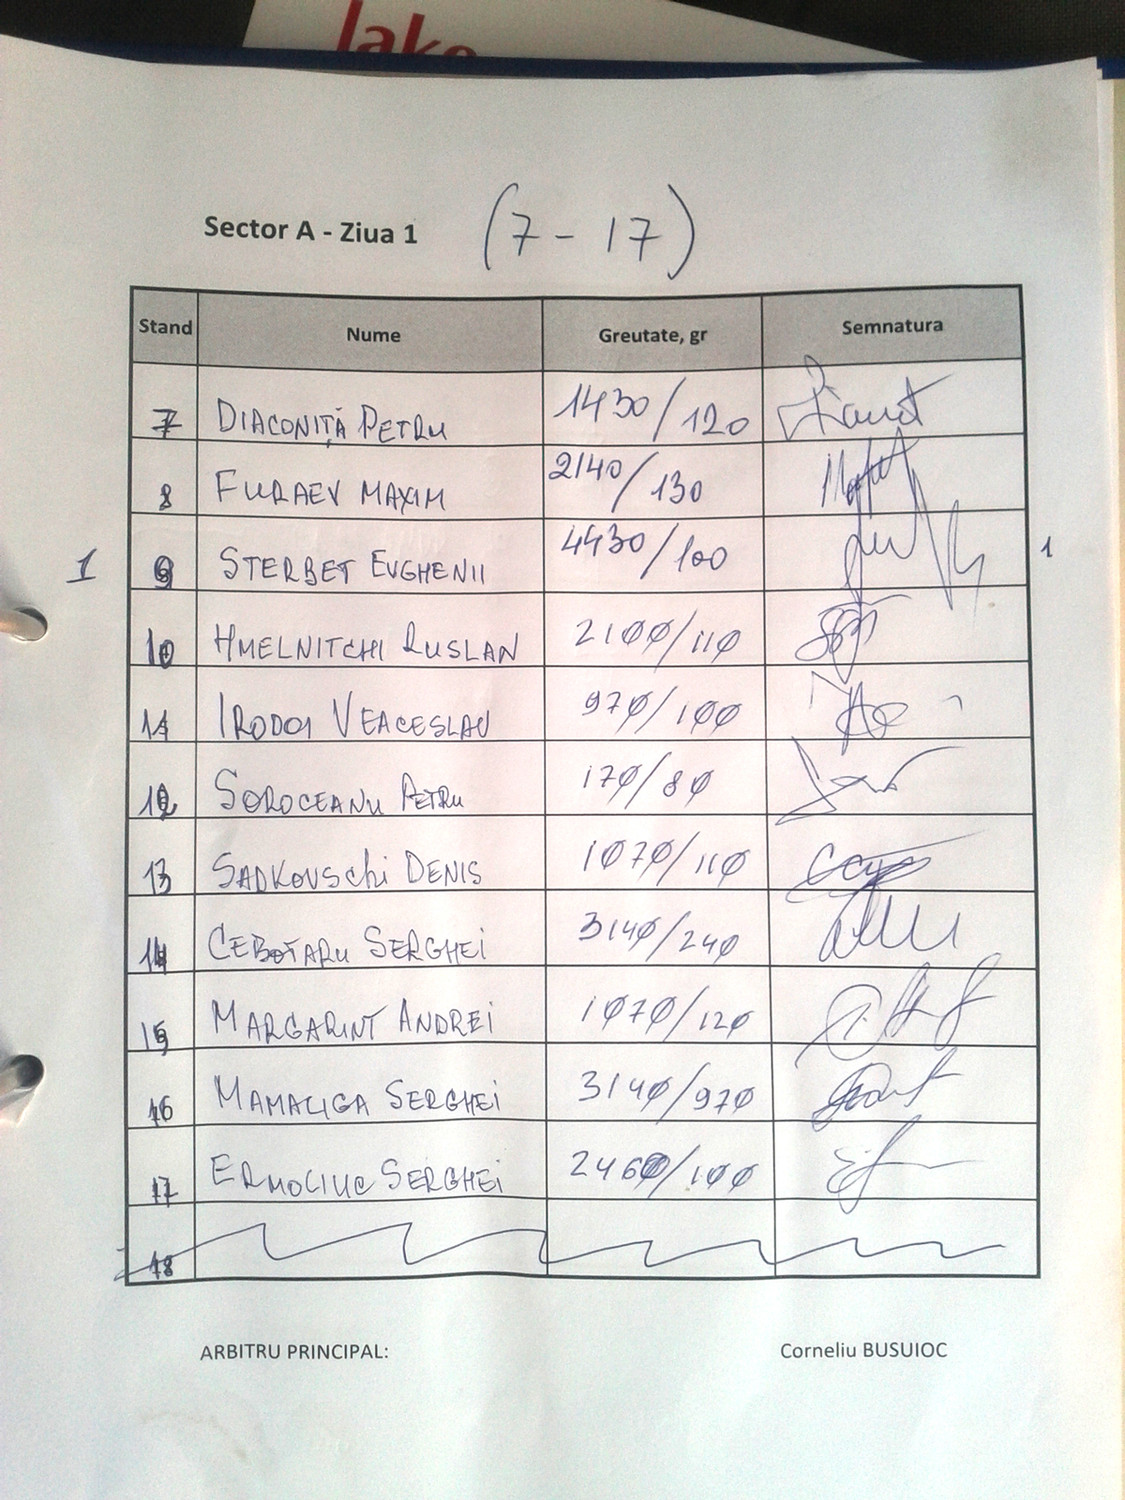 Jake
Sector A - Ziua 1 (7 - 17)
Stand Nume Greutate, gr Semnatura
7 DIACONIȚĂ PETRU 1430/120
8 FURAEV MAXIM 2140/130
1 9 STERBET EVGHENII 4430/100 1
10 HMELNITCHI RUSLAN 2100/110
11 IRODOI VEACESLAV 970/100
12 SOROCEANU PETRU 170/80
13 SADKOVSchi DENIS 1070/110
14 CEBOTARU SERGHEI 3140/240
15 MARGARINT ANDREI 1070/120
16 MAMALIGA SERGHEI 3140/970
17 ERMOLIUC SERGHEI 2460/100
18
ARBITRU PRINCIPAL: Corneliu BUSUIOC